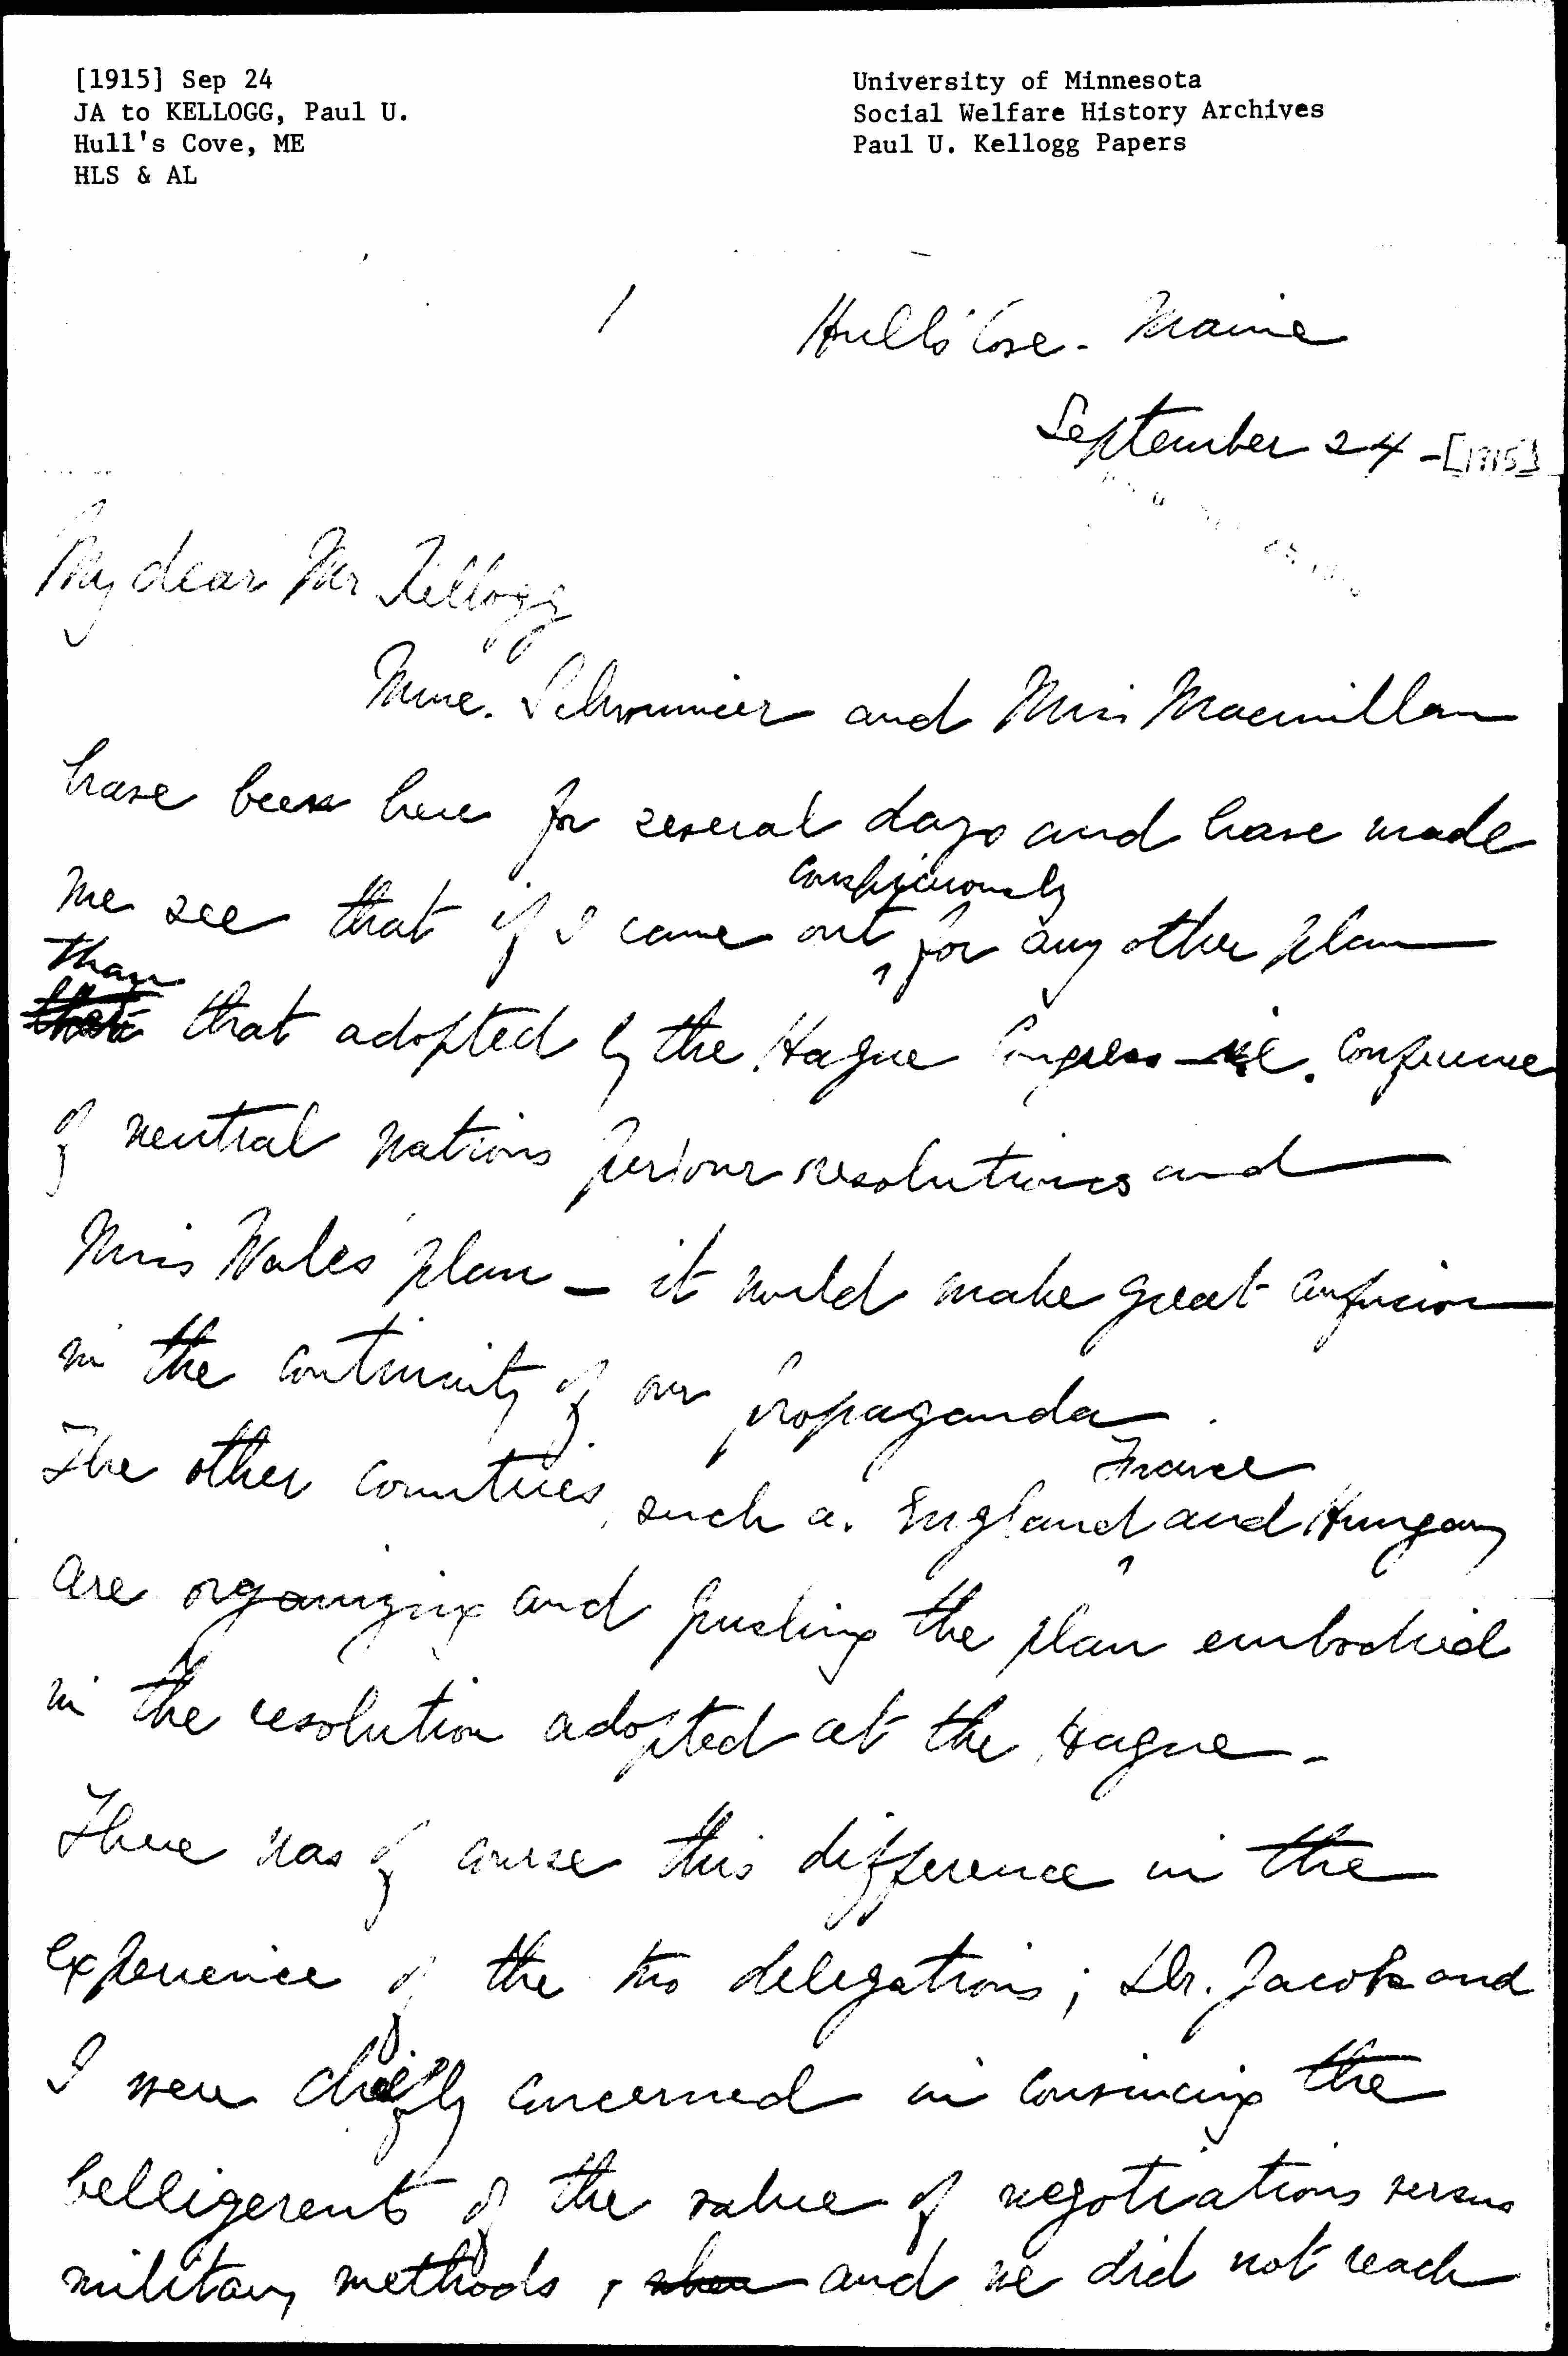 [1915] Sep 24
JA to KELLOGG, Paul U.
Hull's Cove, ME
HLS & AL
University of Minnesota
Social Welfare History Archives
Paul U. Kellogg Papers
1
Hull's Cove - Maine
September 24 - [1915]
My dear Mr Kellogg
Mme. Schwimmer and Miss Macmillan
have been here for several days and have made
me see that if I came out conspicuously for any other plan
than that adopted by the Hague Congress - i.e. conference
of neutral nations per our resolutions and
Miss Wales' plan - it would make great confusion
in the continuity of our propaganda.
The other countries, such as England France and Hungary
are organizing and pushing the plan embodied
in the resolution adopted at the Hague -
There was of course this difference in the
experience of the two delegations; Dr. Jacobs and
I were chiefly concerned in convincing the
belligerents of the value of negotiations versus
military methods, when and we did not reach